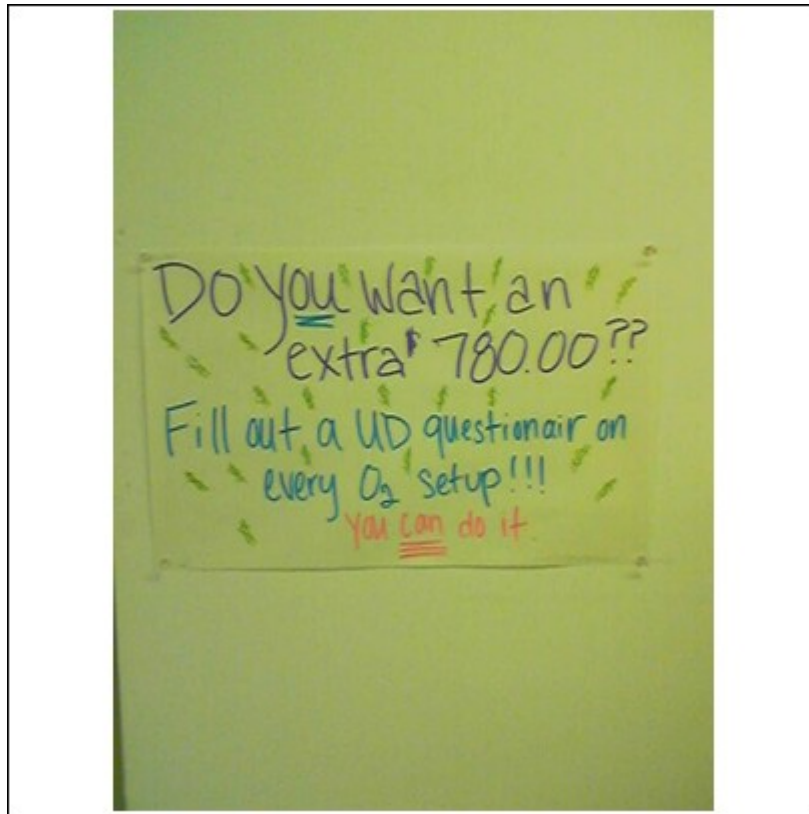 Do you want an
extra $780.00??
Fill out a UD questionair on
every O₂ setup!!!
you can do it